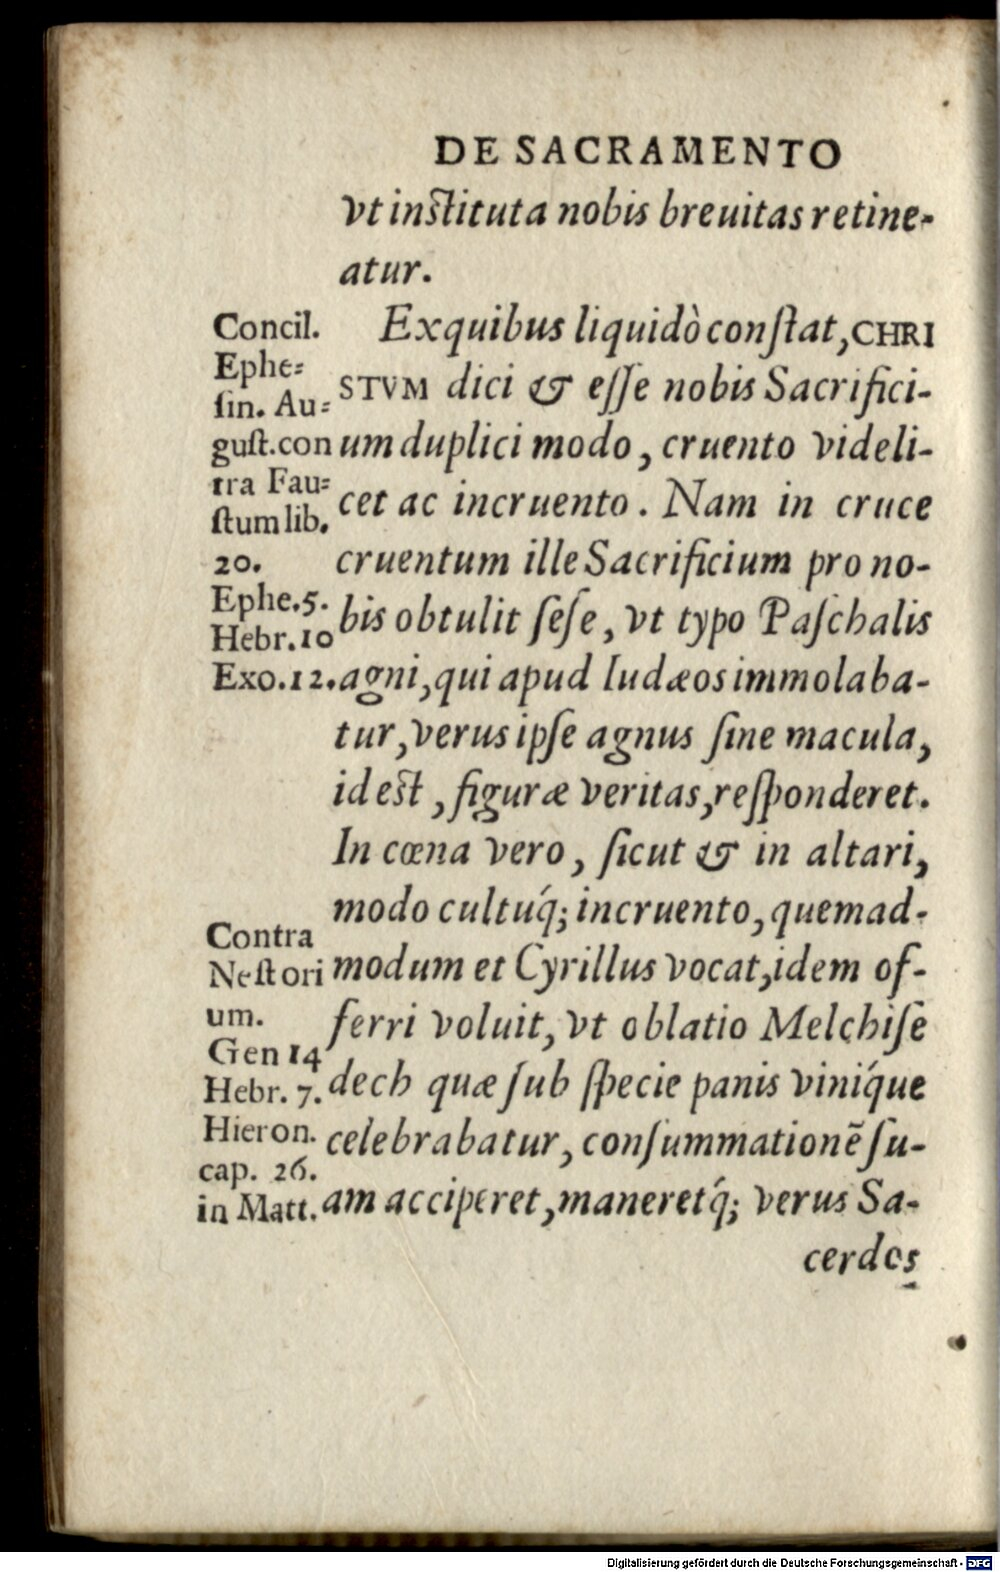 DE SACRAMENTO
vt instituta nobis breuitas retine-
atur.
Ex quibus liquidò constat, CHRI
STVM dici & esse nobis Sacrifici-
um duplici modo, cruento videli-
cet ac incruento. Nam in cruce
cruentum ille Sacrificium pro no-
bis obtulit sese, vt typo Paschalis
agni, qui apud Iudæos immolaba-
tur, verus ipse agnus sine macula,
id est, figuræ veritas, responderet.
In cœna vero, sicut & in altari,
modo cultuq́; incruento, quemad-
modum et Cyrillus vocat, idem of-
ferri voluit, vt oblatio Melchise
dech quæ sub specie panis viniq́ue
celebrabatur, consummationē su-
am acciperet, maneretq́; verus Sa-
cerdos
Concil.
Ephe-
sin. Au-
gust. con
tra Fau-
stum lib.
20.
Ephe. 5.
Hebr. 10
Exo. 12.
Contra
Nestori
um.
Gen 14
Hebr. 7.
Hieron.
cap. 26.
in Matt.
Digitalisierung gefördert durch die Deutsche Forschungsgemeinschaft - DFG